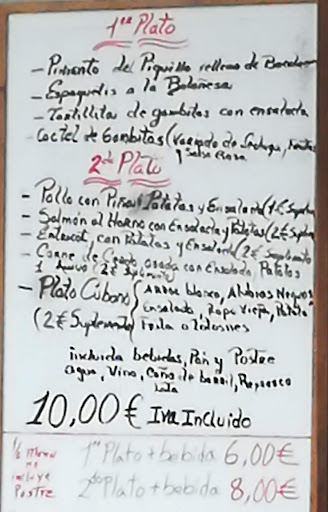 1er Plato
- Pimiento del Piquillo relleno de Bacalao
- Espaguetis a la Boloñesa
- Tortillita de gambitas con ensalada
- Coctel de Gambitas (Variado de Lechuga,
y Salsa Rosa
2do Plato
- Pollo con Patatas y Ensalada (1€
- Salmon al Horno con Ensalada y Patatas (2€
- Entrecot con Patatas y Ensalada (2€ Suplemento
- Carne de asada con Ensalada Patatas
(2€ Suplemento)
- Plato Cubano Arroz blanco, Alubias Negras
Ensalada, Ropa Vieja, Patata
(2€ Suplemento) Frita o Tostones
incluida bebidas, Pan y Postre
agua, Vino, Caña de barril, Refresco
lata
10,00€ Iva Incluido
½ menu no incluye Postre
1er Plato + bebida 6,00€
2do Plato + bebida 8,00€